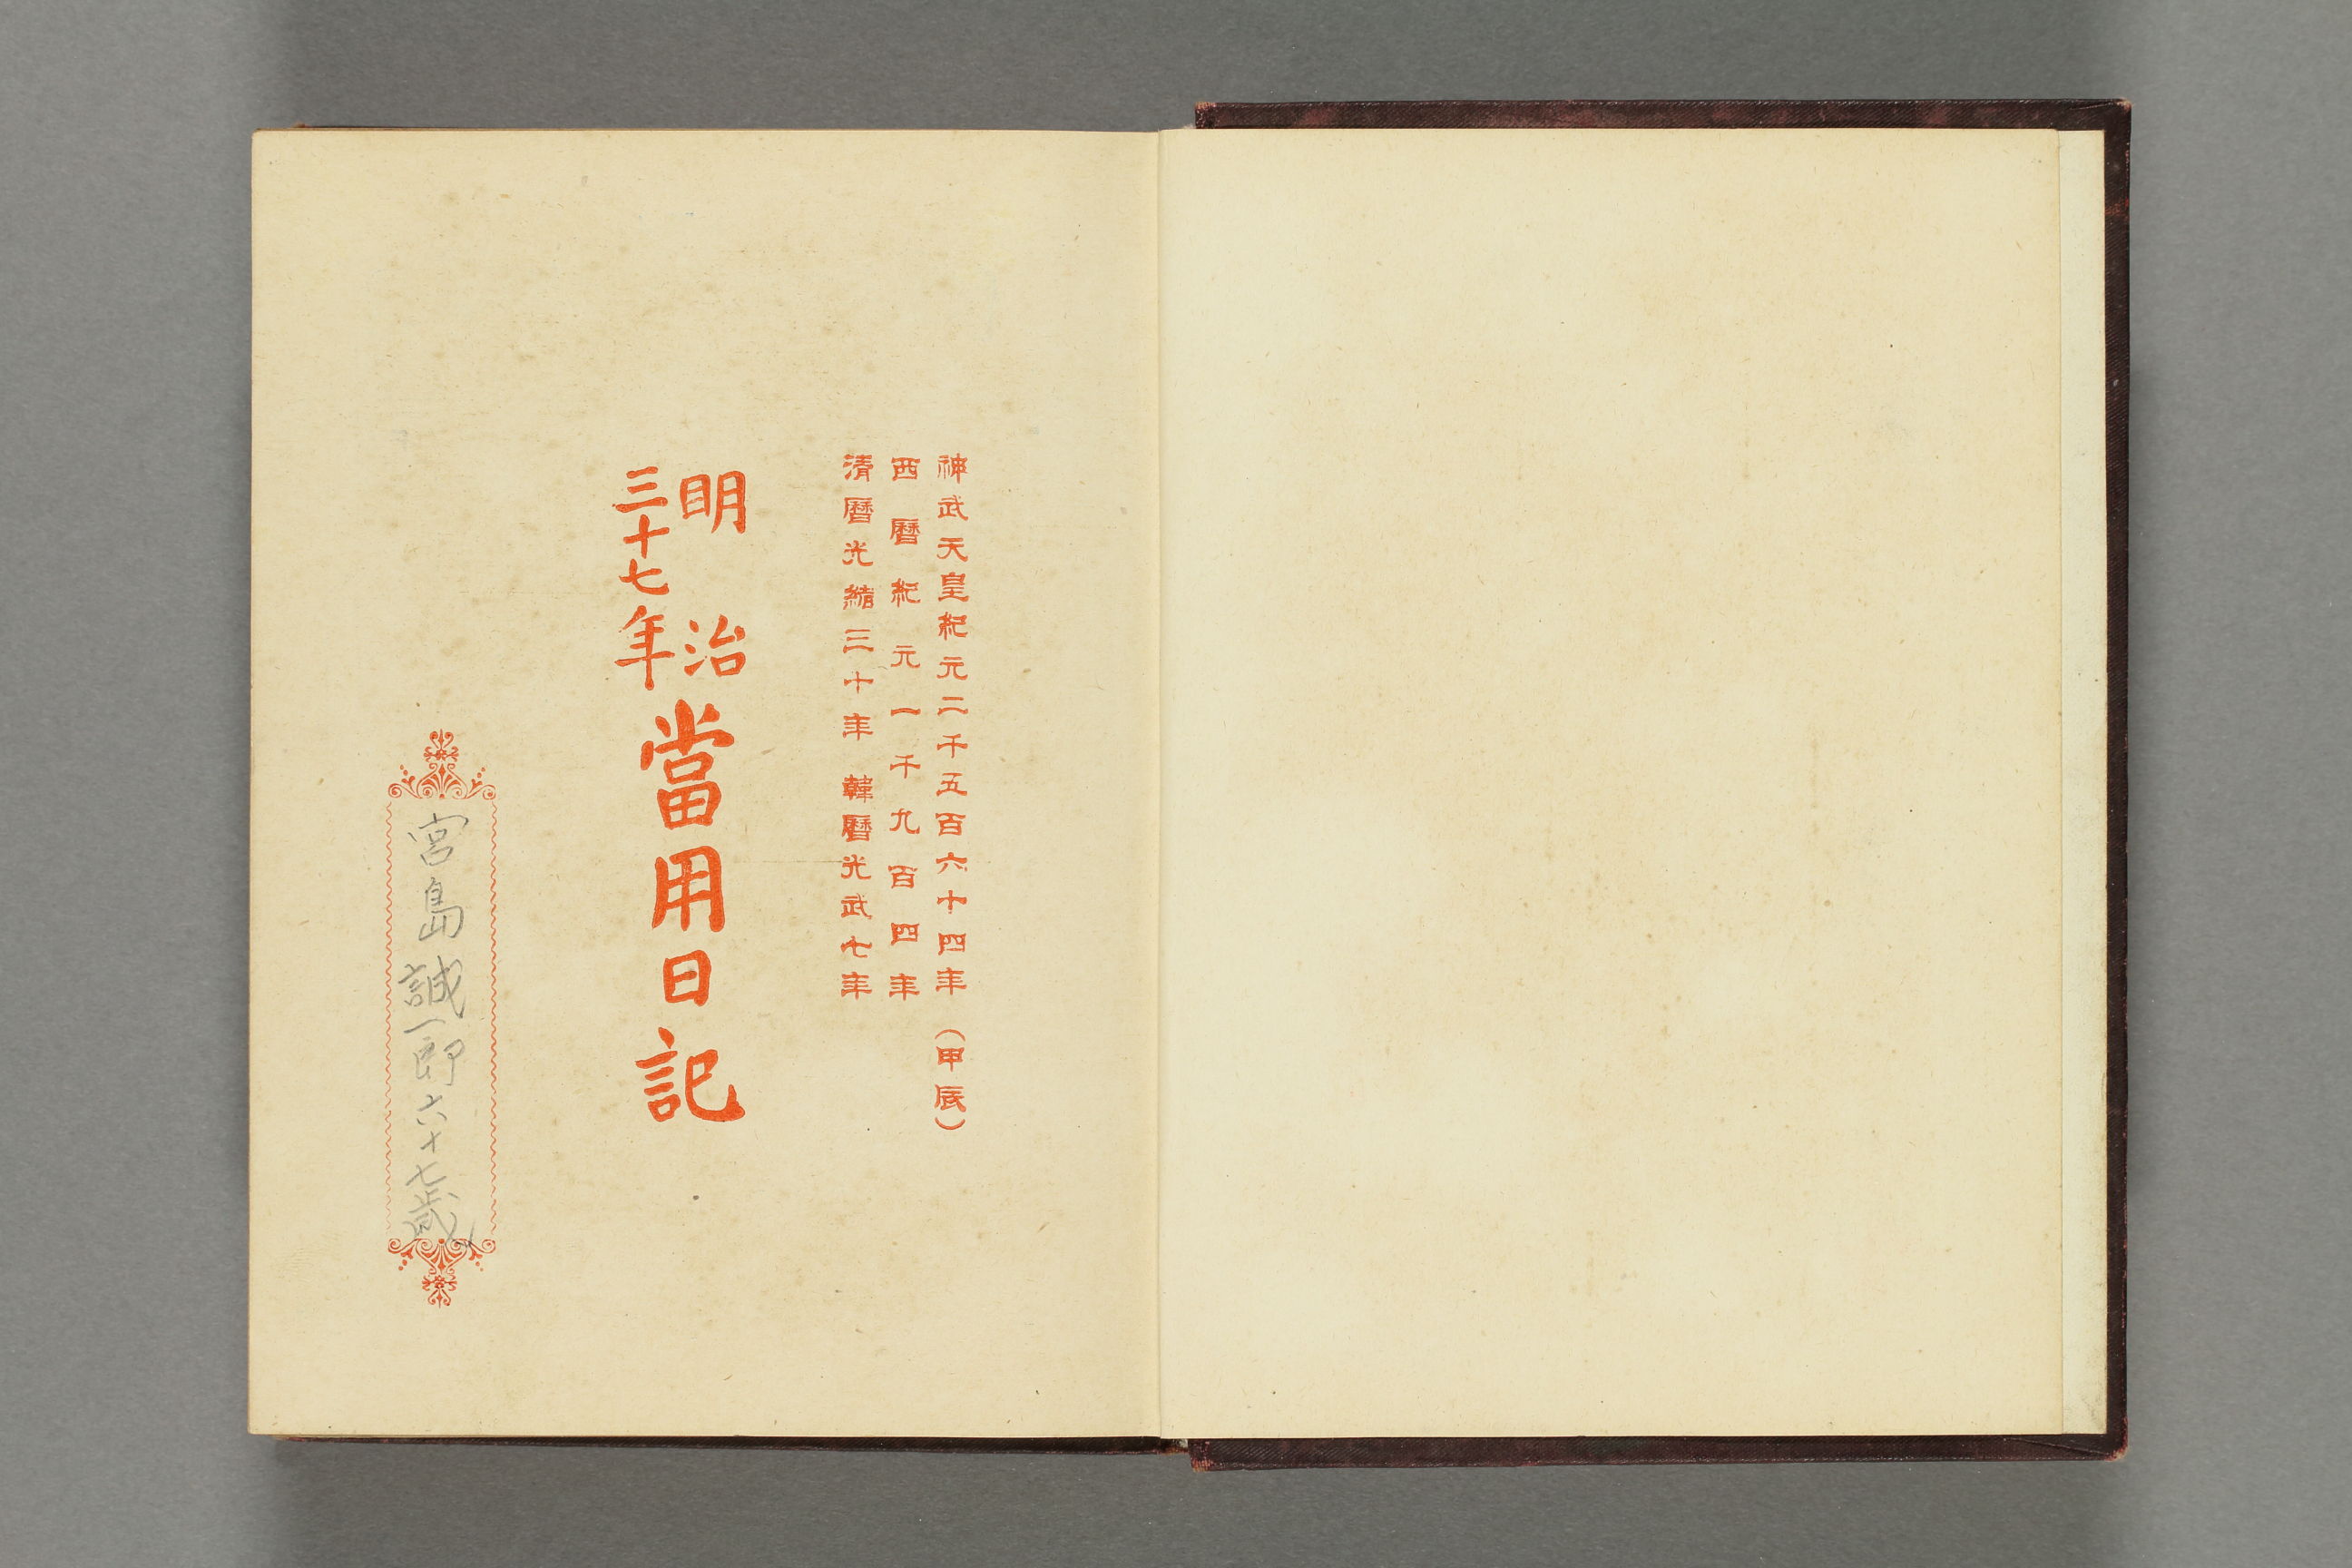 神武天皇紀元二千五百六十四年（甲辰）
西曆紀元一千九百四年
清曆光緖三十年 韓曆光武七年
明治三十七年當用日記
宮島誠一郎六十七歳